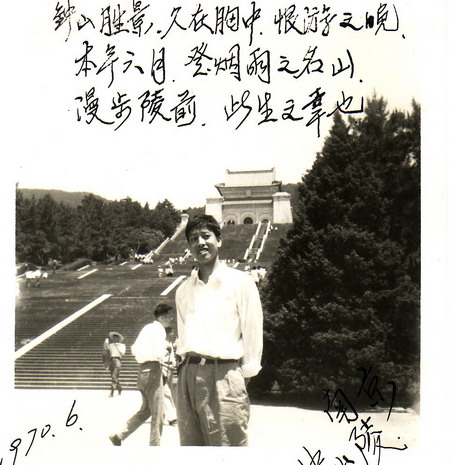 钟山胜景.久在胸中.恨游之晚.
本年六月.登烟雨之名山.
漫步陵前.此生之幸也
1970.6.
南京
陵